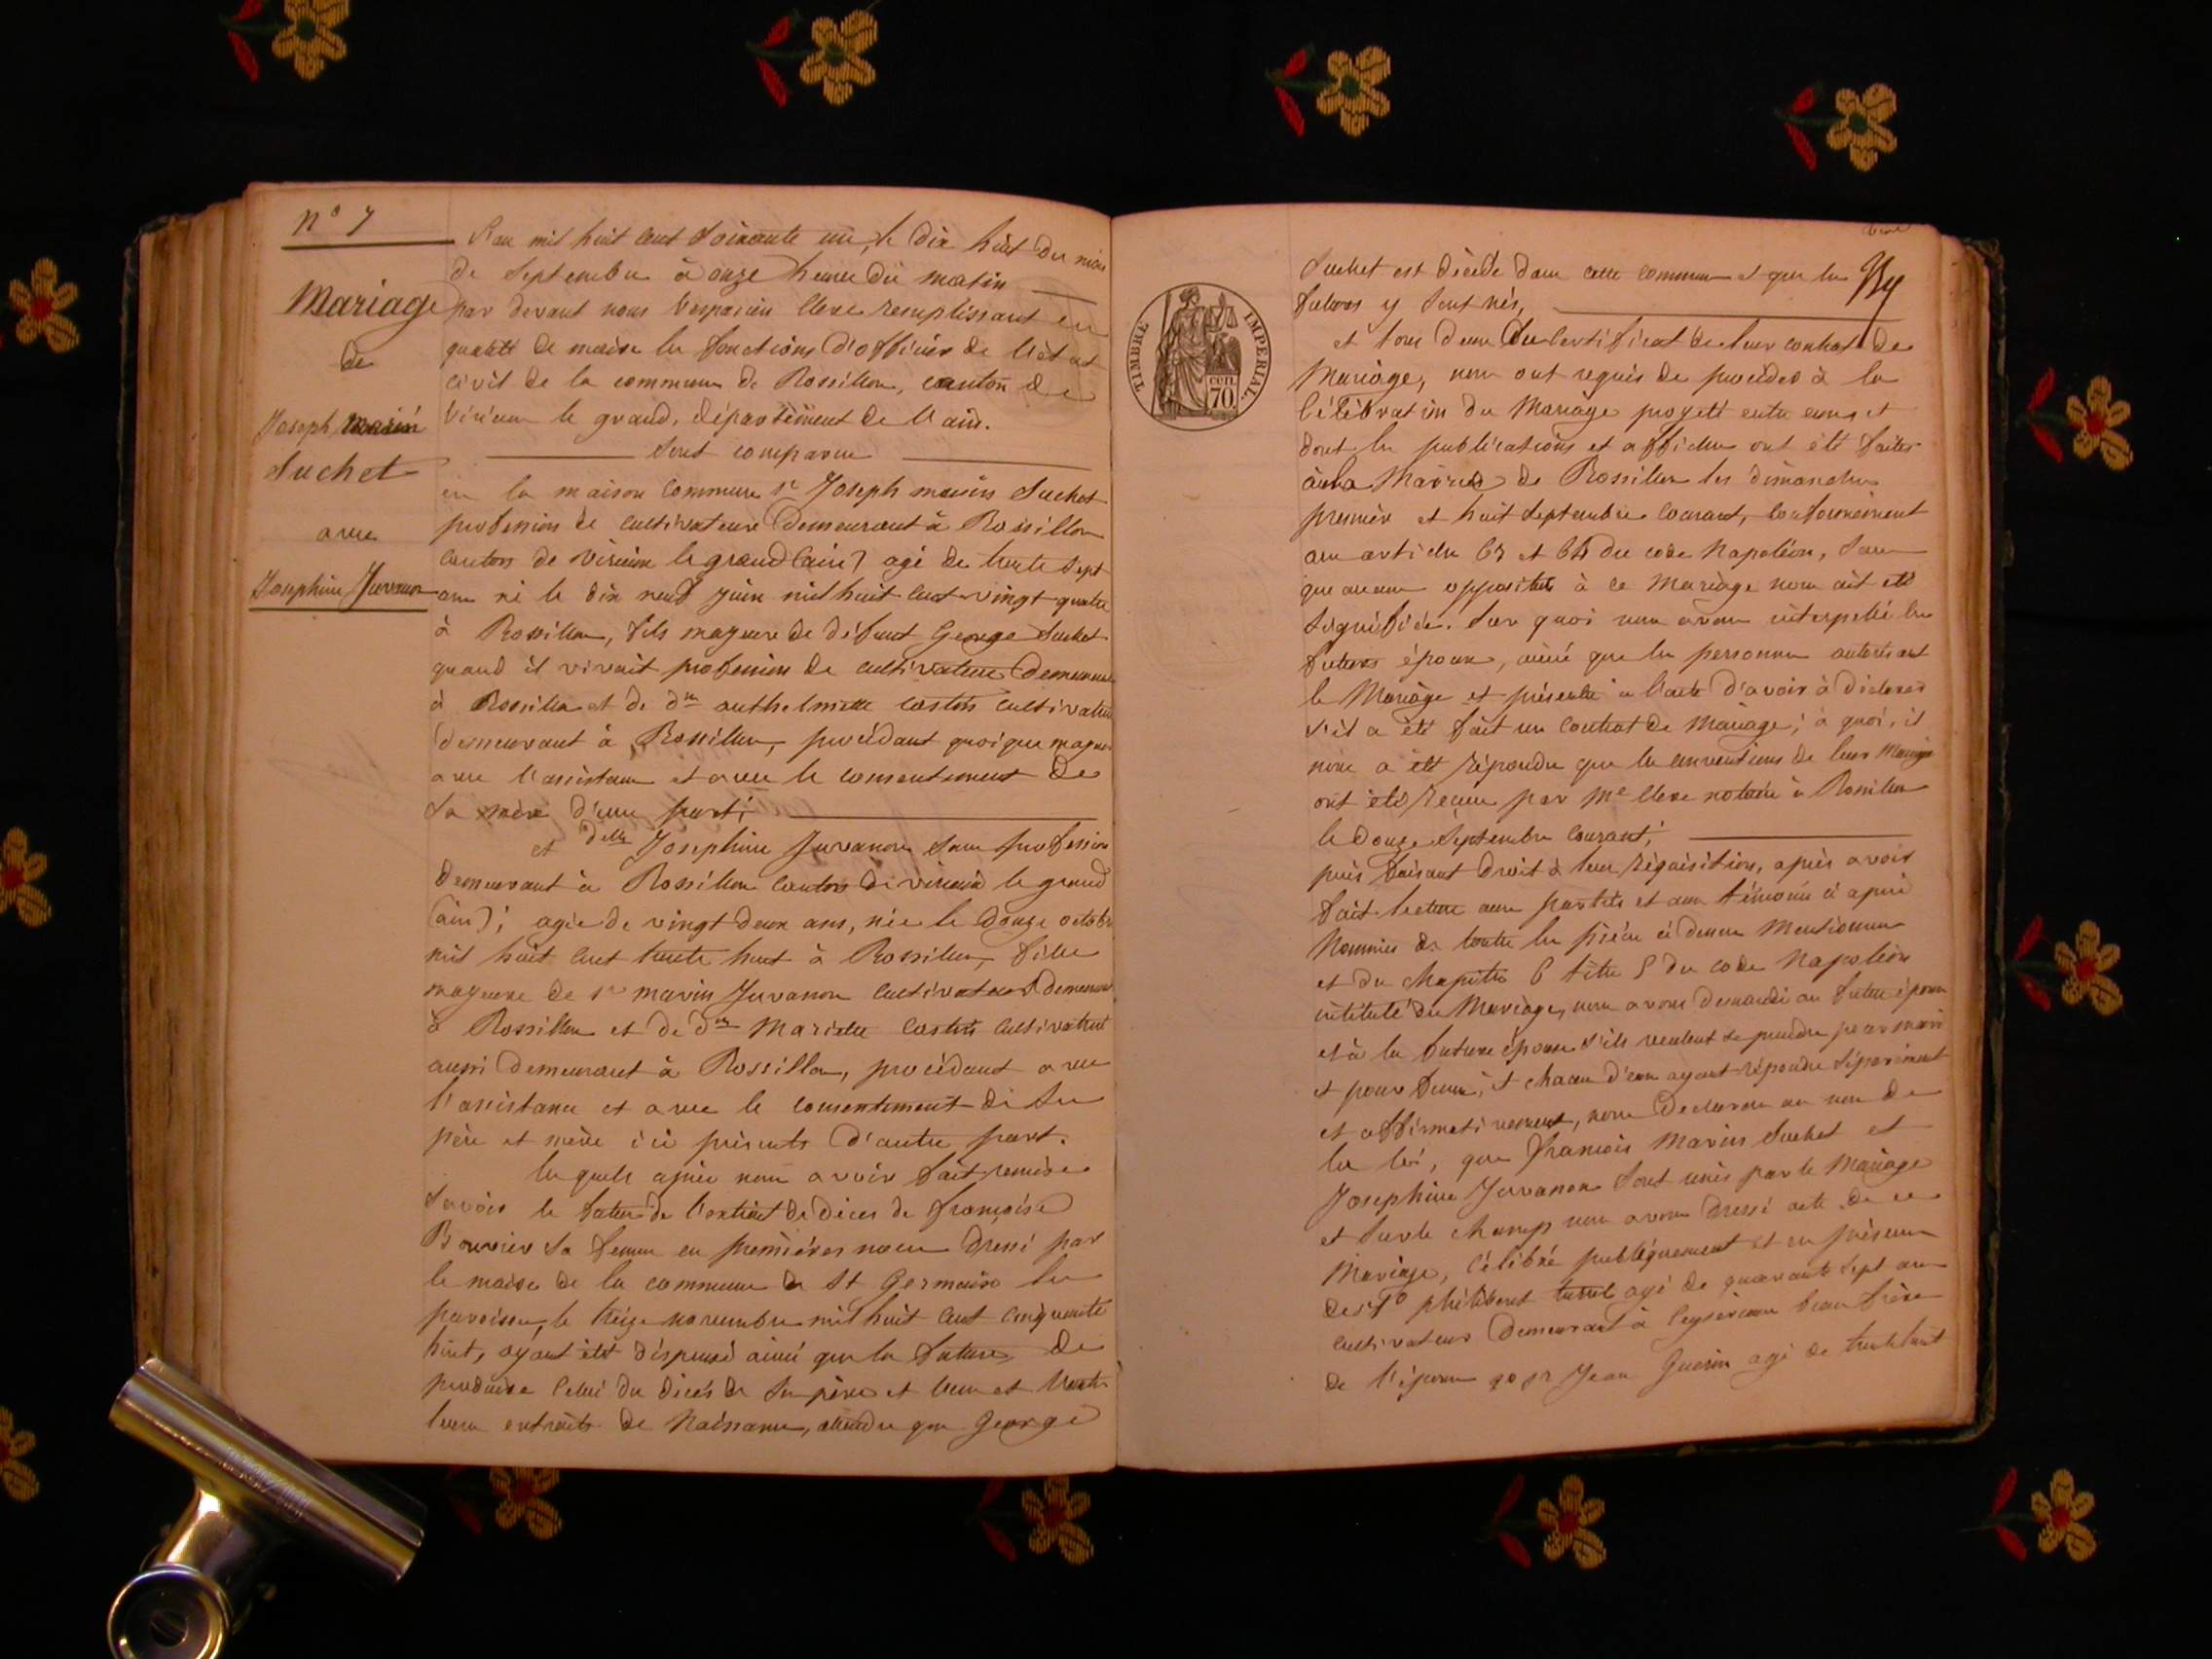 n° 7
Mariage
de
Joseph Marin
Suchet
avec
Josephine Juvanon
L'an mil huit cent soixante un, le dix huit du mois
de Septembre à onze heures du matin
par devant nous Vespasien Clerc remplissant en
qualité de maire les fonctions d'officier de l'état
civil de la commune de Rossillon, canton de
Virieu le grand, département de l'ain.
Sont comparus
en la maison commune Sr Joseph marin Suchet
profession de cultivateur demeurant à Rossillon
canton de Virieu le grand (ain) agé de trente sept
ans né le dix neuf juin mil huit cent vingt quatre
à Rossillon, fils majeur de défunt George Suchet
quand il vivait profession de cultivateur demeurant
à Rossillon et de dme anthelmette Costes cultivatrice
demeurant à Rossillon, procédant quoique majeur
avec l'assistance et avec le consentement de
sa mère d'une part;
et delle Joséphine Juvanon sans profession
demeurant à Rossillon canton de virieu le grand
(ain); agée de vingt deux ans, née le douze octobre
mil huit cent trente huit à Rossillon, fille
majeure de sr marin Juvanon cultivateur demeurant
à Rossillon et de dme Mariette Costes cultivatrice
aussi demeurant à Rossillon, procédant avec
l'assistance et avec le consentement de ses
père et mère ici présents d'autre part.
les quels après nous avoir fait remise
Savoir le futur de l'extrait de décès de françoise
Bouvier sa femme en premières noces dressé par
le maire de la commune de St Germain les
paroisses, le treize novembre mil huit cent cinquante
huit, ayant été dispensé ainsi que la future, de
produire celui du décès de son père et leur et
leurs extraits de Naissance, attendu que George
Suchet est décédé dans cette commune et que les
futurs y sont nés,
et tous deux du certificat de leur contrat de
Mariage, nous ont requis de procéder à la
célébration du Mariage projeté entre eux et
dont les publications et affiches ont été faites
à la Mairie de Rossillon les dimanches
premier et huit Septembre courant, conformément
aux articles 63 et 64 du code Napoléon, sans
que aucune opposition à ce Mariage nous ait été
signifiée. Sur quoi nous avons interpellé les
futurs époux, ainsi que les personnes autorisant
le Mariage et présentes à l'acte d'avoir à déclarer
s'il a été fait un contrat de Mariage; à quoi, il
nous a été répondu que les conventions de leur Mariage
ont été reçues par Me Clerc notaire à Rossillon
le douze Septembre courant;
puis faisant droit à leur réquisition, après avoir
fait lecture aux parties et aux témoins ci après
Nommés de toutes les pièces ci dessus Mentionnées
et du chapitre 6 titre 5 du code Napoléon
intitulé du Mariage, nous avons demandé au futur époux
et à la future épouse s'ils veulent se prendre pour mari
et pour femme; et chacun d'eux ayant répondu séparément
et affirmativement, nous declarons au nom de
la loi, que François Marin Suchet et
Josephine Juvanon sont unis par le Mariage
et sur le champ nous avons dressé acte de ce
Mariage, célébré publiquement et en présence
des 1° philibert agé de quarante sept ans
cultivateur demeurant à Ceyzerieu beau frère
de l'époux 2° sr Jean Guerin agé de trente huit
TIMBRE IMPERIAL
CEN. 70